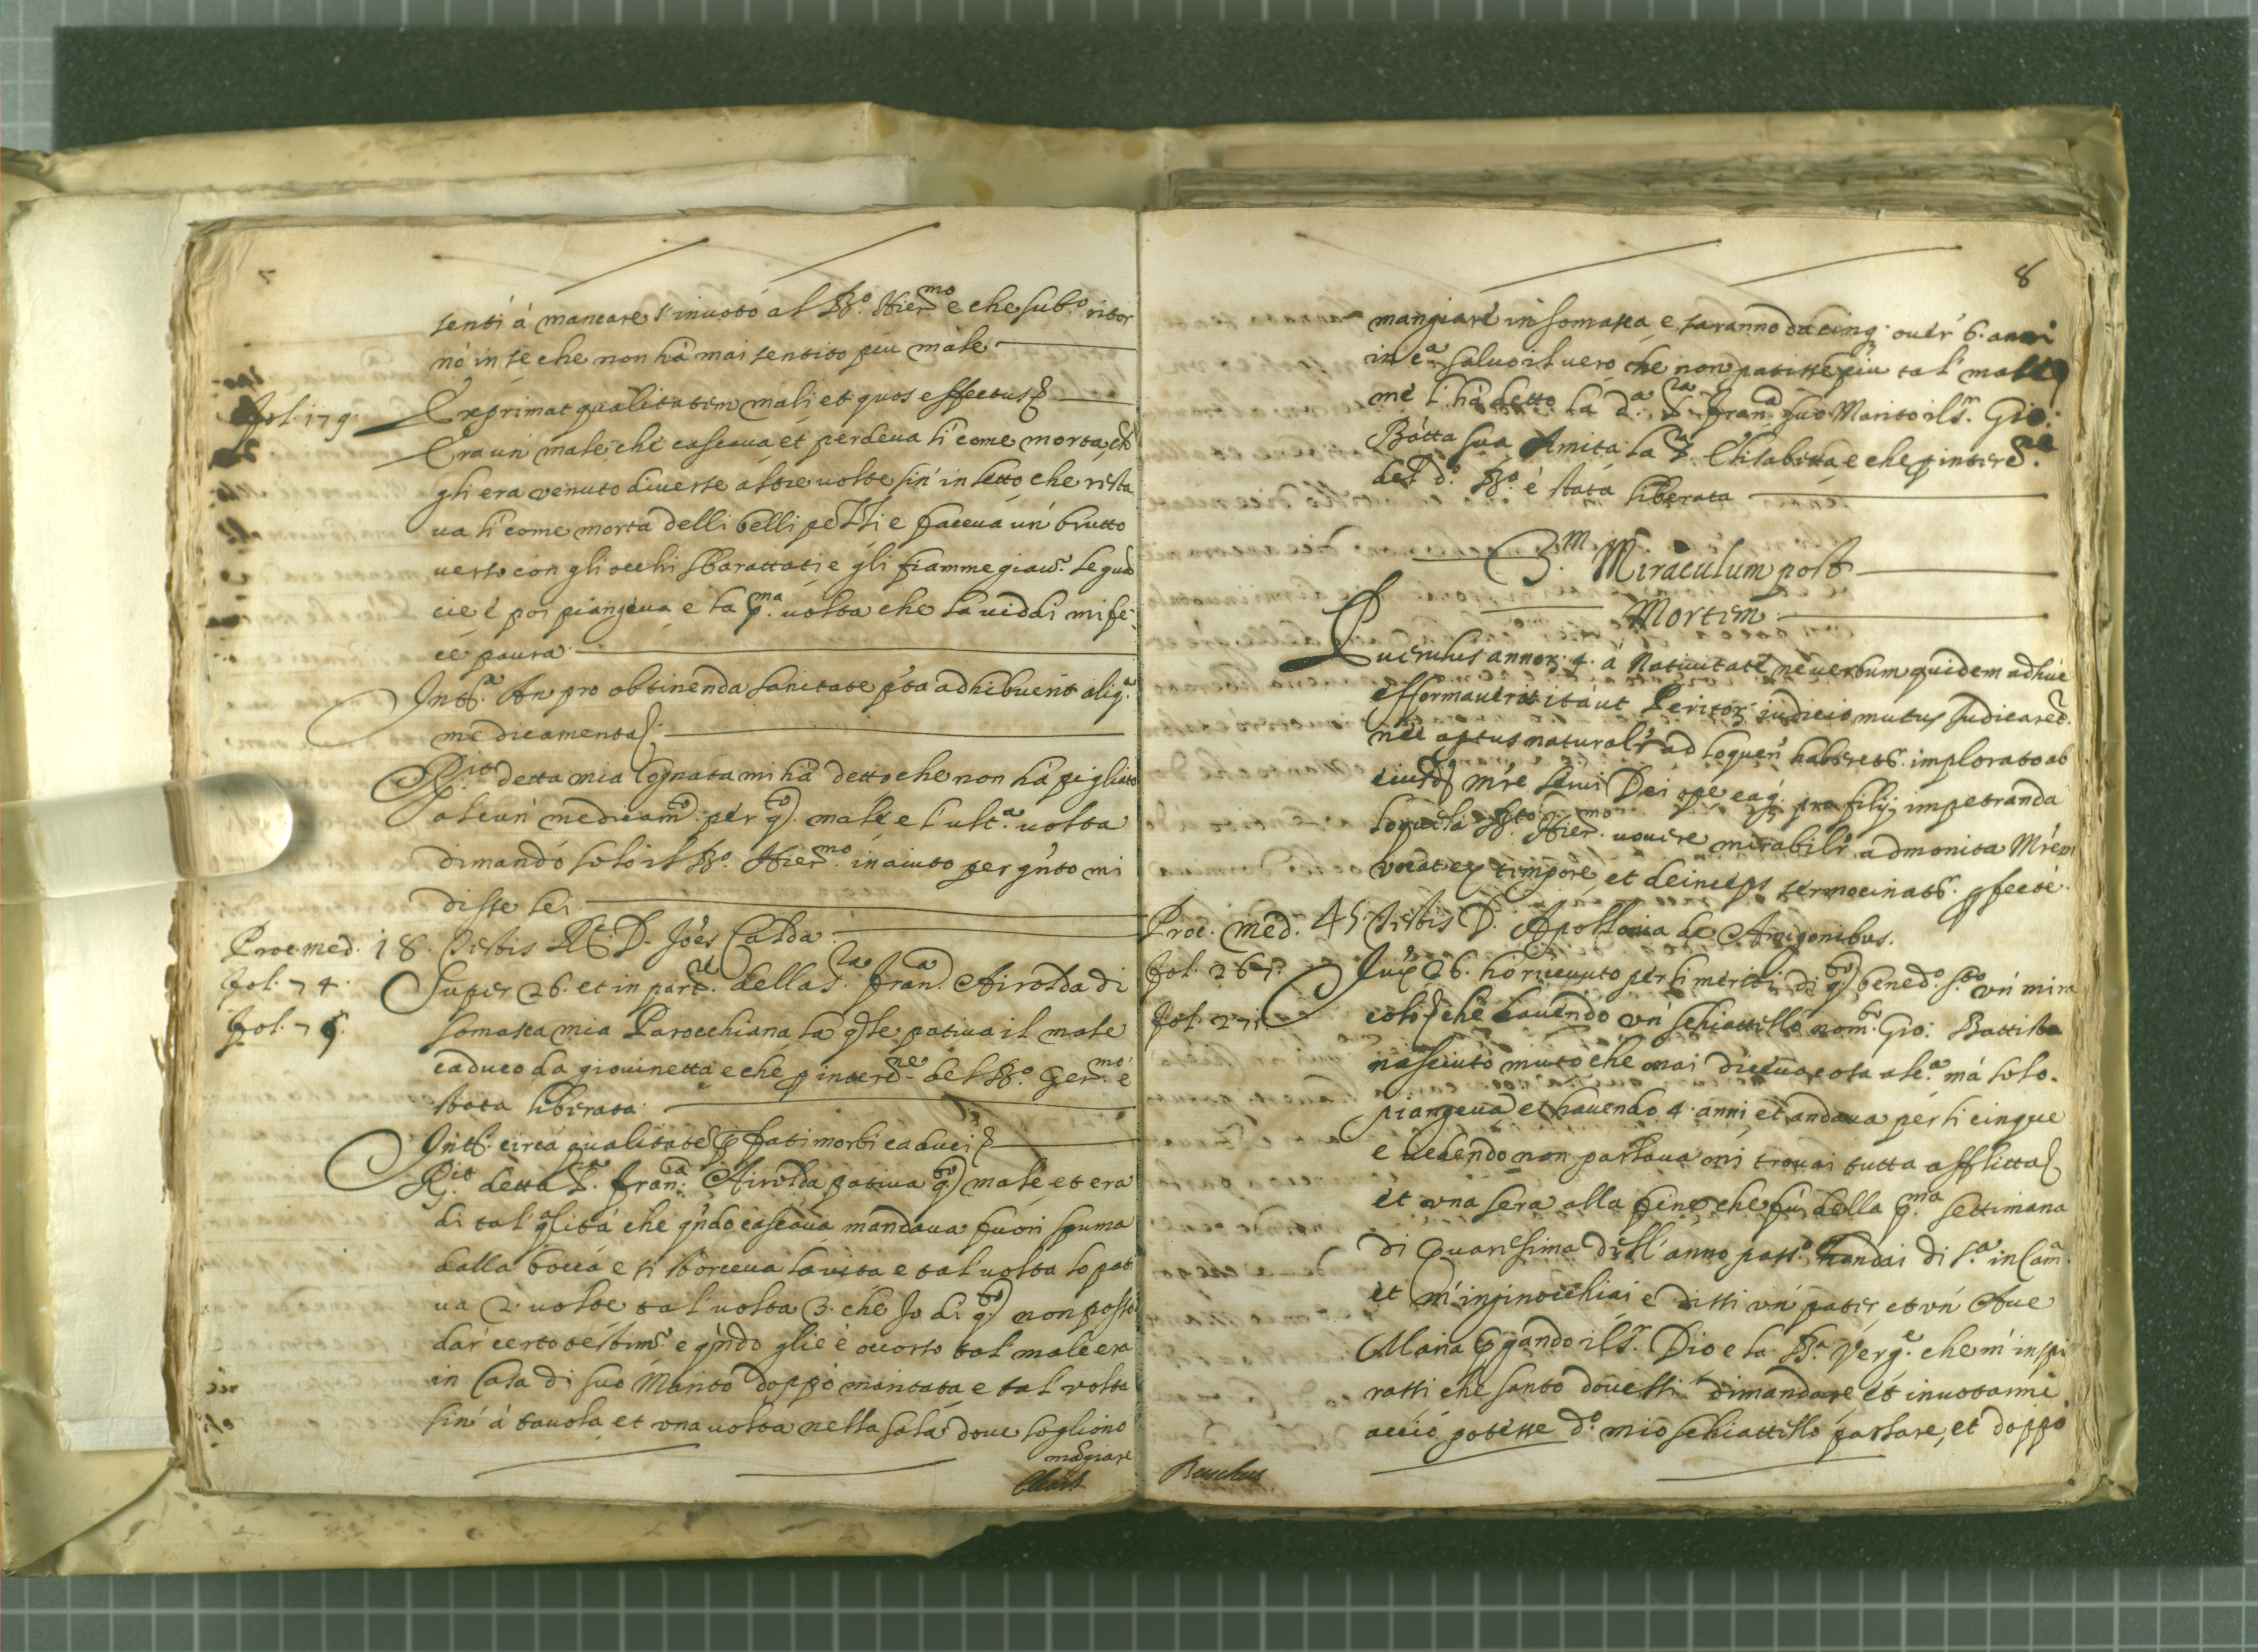 7
sentì à mancare s'inuotò al B.º Hier.mo e che sub.º ritor
nò in se che non hà mai sentito più male
fol. 179. Exprimat qualitatem mali et quos effectus
Era un' male, che cascaua et perdeua lì come morta, et
gli era venuto diuerse altre uolte sin' in letto che resta
ua lì come morta delli belli pezzi e faceua un' brutto
uerso con gli occhi sbarattati e gli fiammegiau.º le
cie e poi piangeua e la p.ma uolta che la uiddi mi fe:
ce paura
Int. An pro obtinenda sanitate pta adhibuerit aliq.a
medicamenta
R.it detta mia Cognata mi hà detto che non hà pigliato
alcun' medicam.to per q.to male e l'ult.a uolta
dimandò solo il B.º Hier.mo in aiuto per qnto mi
disse lei
Proc. med. 18. Testis R.D. Joes Calda
fol. 74. Super 26. et in part. della S.ra Fran.ca Airolda di
fol. 75. Somasca mia Parocchiana la qle patiua il male
caduco da giouinetta e che p interc.ne del B.º Ger.mo è
stata liberata
Int. circa qualitate fati morbi caduci
R.it detta S.ra Fran.ca Airolda patiua q.to male et era
di tal' qlità che qndo cascaua mandaua fuori spuma
dalla bocca e si storceua la uita e tal uolta lo pati
ua 2. uolte tal' uolta 3. che Io di q.to non posso
dar certo testim.º e qndo glie è occorso tal' male era
in Casa di suo Marito doppò maritata e tal' volta
sin' à tauola et vna uolta nella sala doue sogliono
mãgiare
8
mangiare in Somasca, e saranno da cinq. ouer' 6. anni
in c.a saluo il uero che non patisse più tal' male
me l'hà detto la d.a S.ra Fran.ca suo Marito il S.r Gio:
Batta sua Amita la S.ra Elisabetta e che p interc.ne
del d.º B.º è stata liberata
3.m Miraculum post
Mortem
Puerulus annor. 4. à Natiuitate ne uerbum quidem adhuc
efformauerit ità ut Peritor. iudicio mutus iudicaret.
nec aptus naturalr ad loquen. haberet. implorato ab
eiusd. mre serui Dei ope eaq. pro filij impetranda
loquela B.to Hier.mo uouere mirabilr admonita Mrem
vocat ex tempore, et deinceps sermocinat. pfecte.
Proc. med. 45 Testis D. Apollonia de Amigonibus.
fol. 267. Jux. 26. hò riceuuto per li meriti di q.to bened.º S.to vn' mira
fol. 271 colo che hauendo vn' schiattello nom.to Gio: Battista
nasciuto muto che mai diceua cosa alc.a mà solo
piangeua et hauendo 4. anni, et andaua per li cinque
e uedendo non parlaua mi trouai tutta afflitta
et vna sera alla fine che fù della p.ma settimana
di Quaresima dell' anno pass.º andai di S.a in Cam.a
et m'inginocchiai e dissi vn' pater et vn' Aue
Maria pgando il S.r Dio e la B.a Verg.e che m' inspi
rassi che santo douessi dimandare et inuotarmi
acciò potesse d.º mio schiattello parlare, et doppò